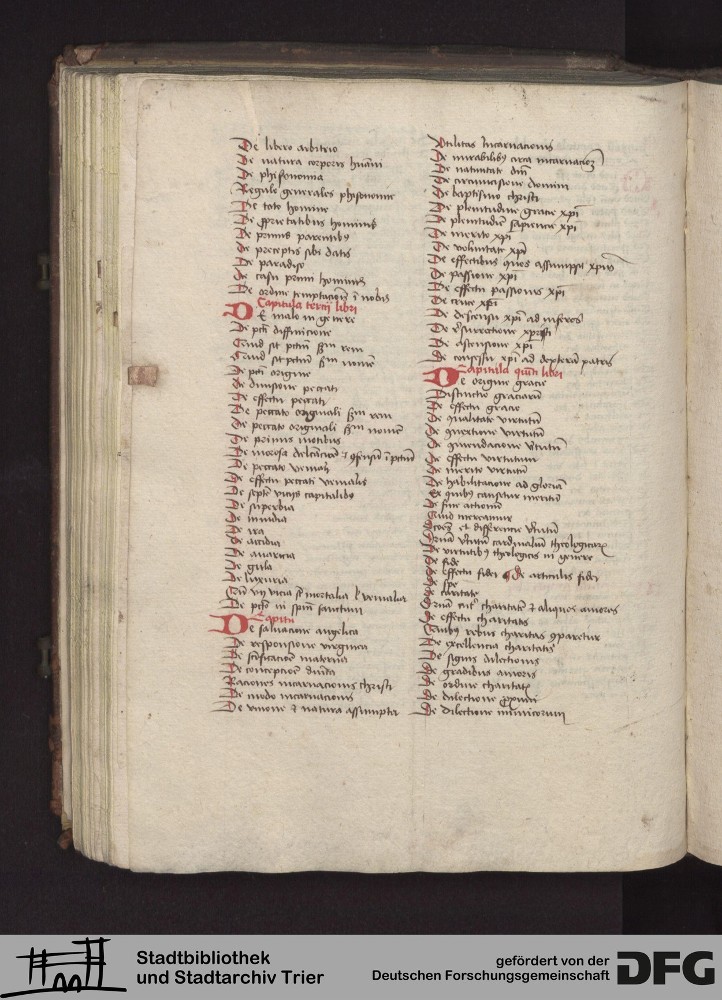 De libero arbitrio
De natura corporis huāni
De phisonomia
Regule generales phisonomie
De toto homine
De ꝓprietatibus hominis
De primis parentibꝫ
De preceptis sibi datis
De paradiso
De casu primi hominis
De ordine temptacionis ī nobis
Capitula tercij libri
DE malo in genere
De pctī diffinicione
Quid sit pctm̄ scdm̄ rem
Quid sit pctm̄ scdm̄ nomē
De pctī origine
De diuisione peccati
De effectu peccati
De peccato originali scdm̄ rem
De peccato originali scdm̄ nomē
De primis motibus
De morosa delectacōe ⁊ ꝯsensu ī pctm̄
De peccato veniali
De effectu peccati venialis
De septē vicijs capitalibꝫ
De superbia
De inuidia
De ira
De accidia
De auaricia
De gula
De luxuria
vij vicia sīt mortalia l̄ venialia
De pctō in spm̄ sanctum
Capitu
De saluacione angelica
De responsione virginea
De scīficacōe materna
De concepcōe diuīa
Raciones incarnacionis christi
De modo incarnacionis
De vnione ⁊ natura assumpta
Vtilitas Incarnacionis
De mirabilibꝫ circa incarnacioꝫ
De natiuitate dn̄i
De circumcisione domini
De baptismo christi
De plenitudine gracie xp̄i
De plenitudīe sapiencie xp̄i
De merito xp̄i
De voluntate xp̄i
De effectibus quos assumpsit xp̄us
De passione xp̄i
De effectu passionis xp̄i
De cruce xp̄i
De descensu xp̄i ad inferos
De resurrectione xp̄i
De ascensione xp̄i
De consessu xp̄i ad dexterā patris
Capitula quīti libri
De origine gracie
Distinctio graciarū
De effectu gracie
De qualitate virtutū
De ꝯnexione virtutū
De virtutū
De effectu virtutum
De merito virtutū
De habilitacione ad gloriā
Ex quibꝫ causetur meritū
De fine actionū
Quid mereamur
et differencie v̄tutū
v̄tutū cardinaliū theologicarꝫ
De virtutibꝫ theologicis in genere
De fide
De effectu fidei ¶ De articulis fidei
De spe
De caritate
charitatē ⁊ alios amores
De effectu charitatis
Quibꝫ rebus charitas ꝯparetur
De excellencia charitatis
De signis dilectionis
De gradibus amoris
De ordine charitatis
De dilectione ꝓximi
De dilectione inimicorum
Stadtbibliothek
und Stadtarchiv Trier
gefördert von der
Deutschen Forschungsgemeinschaft
DFG